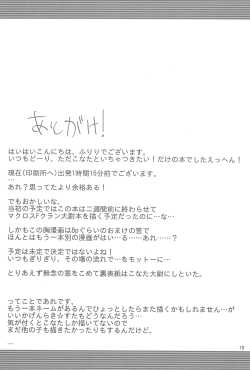 あとがき!
はいはいこんにちは、ふりりでございます。
いつもどーり、ただこなたといちゃつきたい!だけの本でしたえっへん!
現在(印刷所へ)出発1時間15分前でございます。
…
あれ?思ってたより余裕ある!
でもおかしいな。
当初の予定ではこの本は二週間前に終わらせて
マクロスFクラン大尉本を描く予定だったのに…な…
しかもこの胸漫画は8pぐらいのおまけの筈で
ほんとはもう一本別の漫画がはい……る……あれ…?
予定は未定で決定ではない…な…
いつもぎりぎり、その場の流れで…をモットーに…
とりあえず無念の意をこめて裏表紙はこなた大尉にしといた。
ってことであれです。
もう一本ネームがあるんでひょっとしたらまた描くかもしれません…が
いいかげんらき☆すたもどうなんだろう…
気が付くとこなたしか描いてないので
まだ他の子も描きたかったりもするんだけど。
…
19